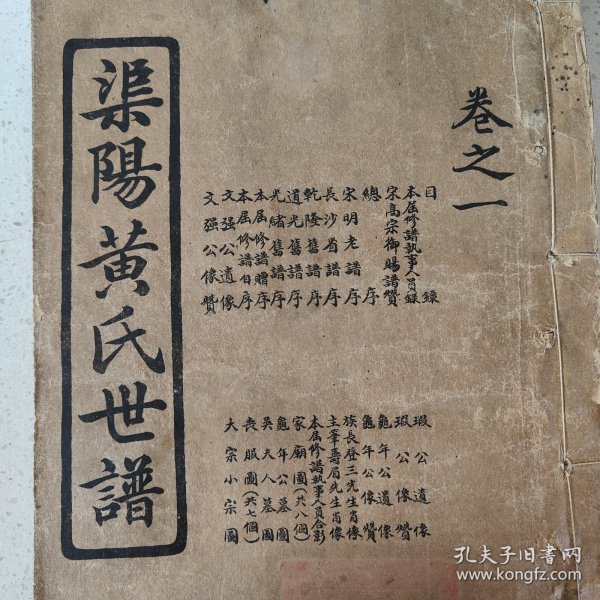 卷之一
目錄
本屆修譜執事人員錄
宋高宗御賜譜贊
總序
宋明老譜序
長沙省譜序
乾隆舊譜序
道光舊譜序
光緒舊譜序
本屆修譜贈序
本屆修譜自序
文强公遺像
文强公像贊
瑕公遺像
瑕公像贊
龜年公遺像
龜年公像贊
族長登三先生肖像
主筆壽眉先生肖像
本屆修譜執事人員合影
家廟圖(共八個)
龜年公墓圖
吳夫人墓圖
喪服圖(共七個)
大宗小宗圖
渠陽黃氏世譜
孔夫子旧书网
www.kongfz.com